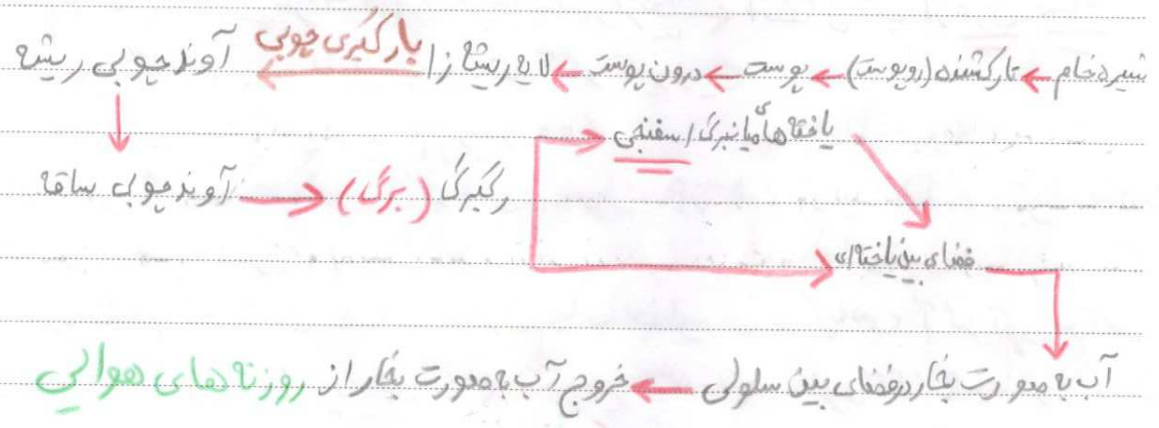 شیره خام ← تارکشنده (روپوست) ← پوست ← درون پوست ← لایه ریشه زا بارگیری چوبی ← آوند چوبی ریشه
یاخته های میانبرگ اسفنجی
آوند چوبی ساقه → رگبرگ (برگ)
فضای بین یاخته ای
آب به صورت بخار در فضای بین سلولی ← خروج آب به صورت بخار از روزنه های هوایی